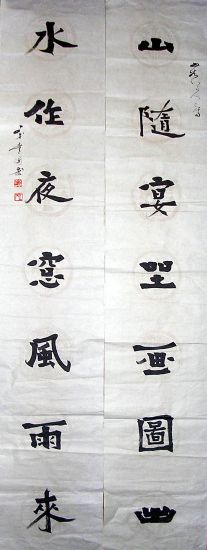 山隨宴坐画圖出
水作夜窓風雨來